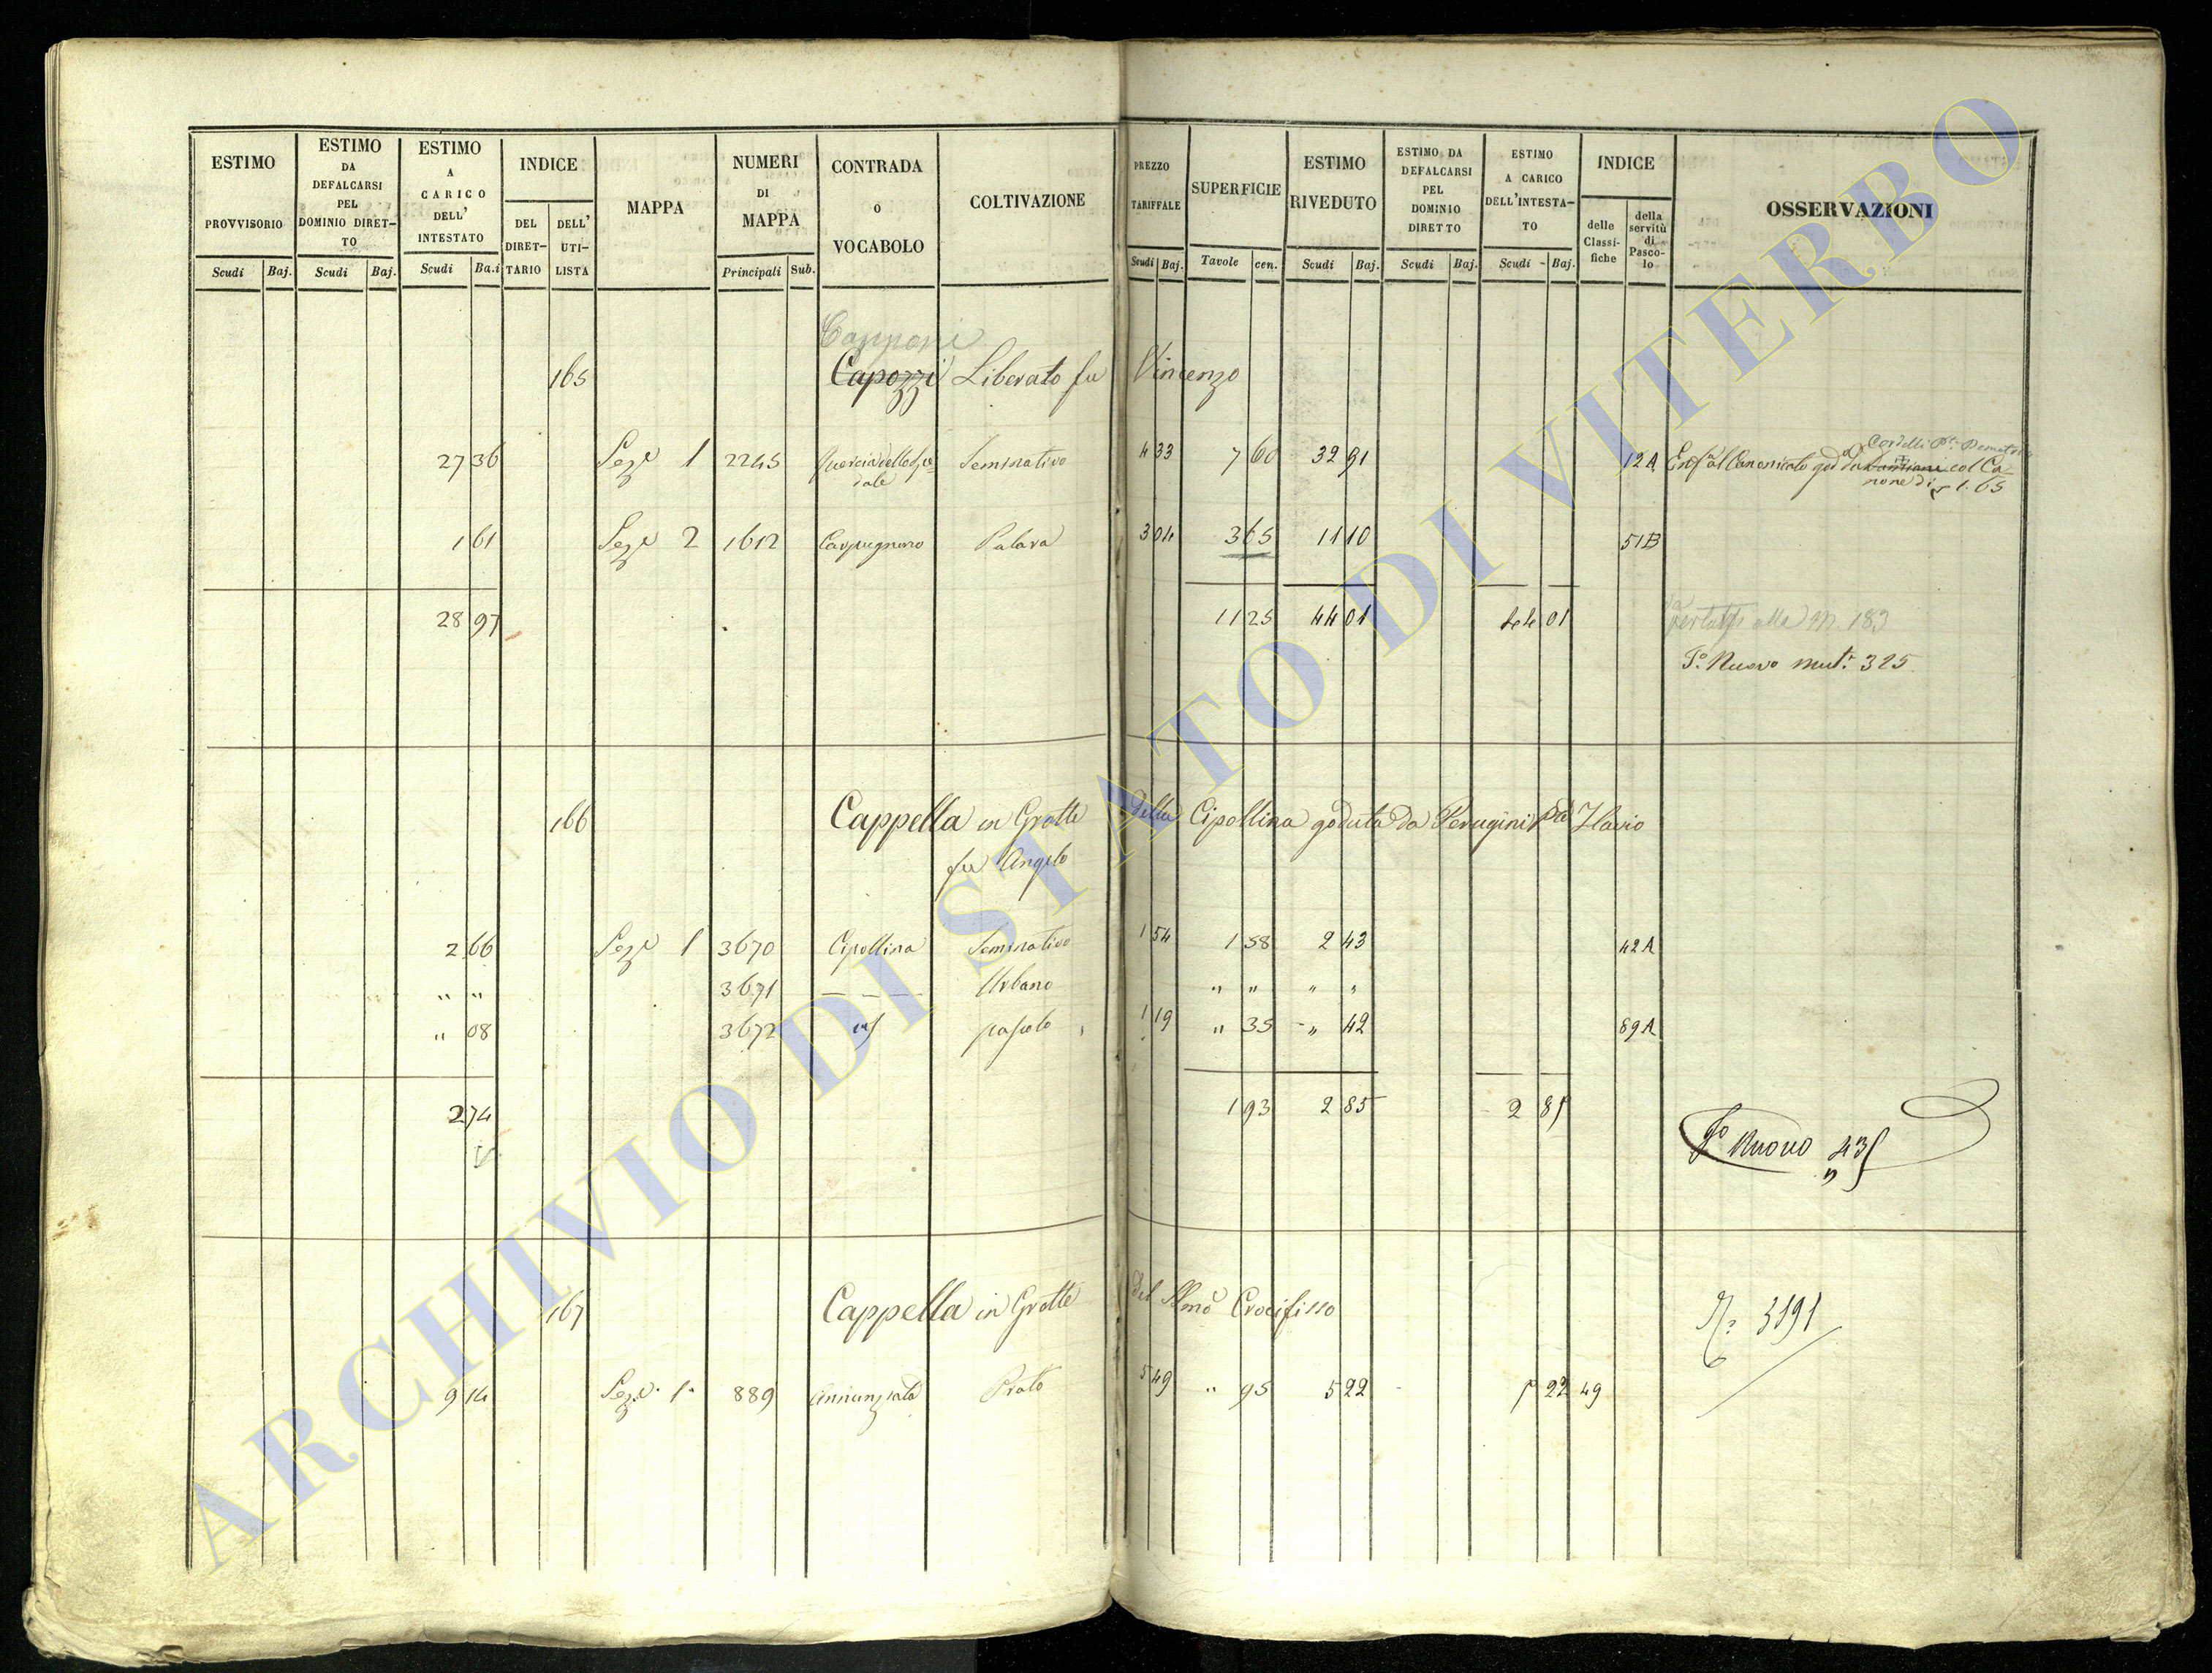 ESTIMO PROVVISORIO
Scudi Baj.
ESTIMO DA DEFALCARSI PEL DOMINIO DIRETTO
Scudi Baj.
ESTIMO A CARICO DELL' INTESTATO
Scudi Ba.i
INDICE
DEL DIRETTARIO
DELL' UTILISTA
MAPPA
NUMERI DI MAPPA
Principali Sub.
CONTRADA O VOCABOLO
COLTIVAZIONE
PREZZO TARIFFALE
Scudi Baj.
SUPERFICIE
Tavole cen.
ESTIMO RIVEDUTO
Scudi Baj.
ESTIMO DA DEFALCARSI PEL DOMINIO DIRETTO
Scudi Baj.
ESTIMO A CARICO DELL'INTESTATO
Scudi Baj.
INDICE
delle Classifiche
della servitù di Pascolo
OSSERVAZIONI
Capponi
165 Capozzi Liberato fu Vincenzo
27 36 Seze 1 2245 Seminativo 4 33 7 60 32 91 12A al Canonicato god da col Ca-
none di 1.65
1 61 Seze 2 1612 Carpugnano Palara 3 04 3 65 11 10 51B
28 97 11 25 44 01 44 01
alla M. 183
F.o Nuovo mut. 325
166 Cappella in Grotte della Cipollina goduta da Perugini Flavio
fu Angelo
2 66 Seze 1 3670 Cipollina Seminativo 1 54 1 58 2 43 42A
" " 3671 — — — Urbano " " " "
" 08 3672 pascolo 1 19 " 35 " 42 89A
2 74 1 93 2 85 2 85
F.o Nuovo 435
167 Cappella in Grotte del SSmo Crocifisso
N. 3191
9 14 Seze 1a 889 Annunziata Prato 5 49 " 95 5 22 5 22 49
ARCHIVIO DI STATO DI VITERBO